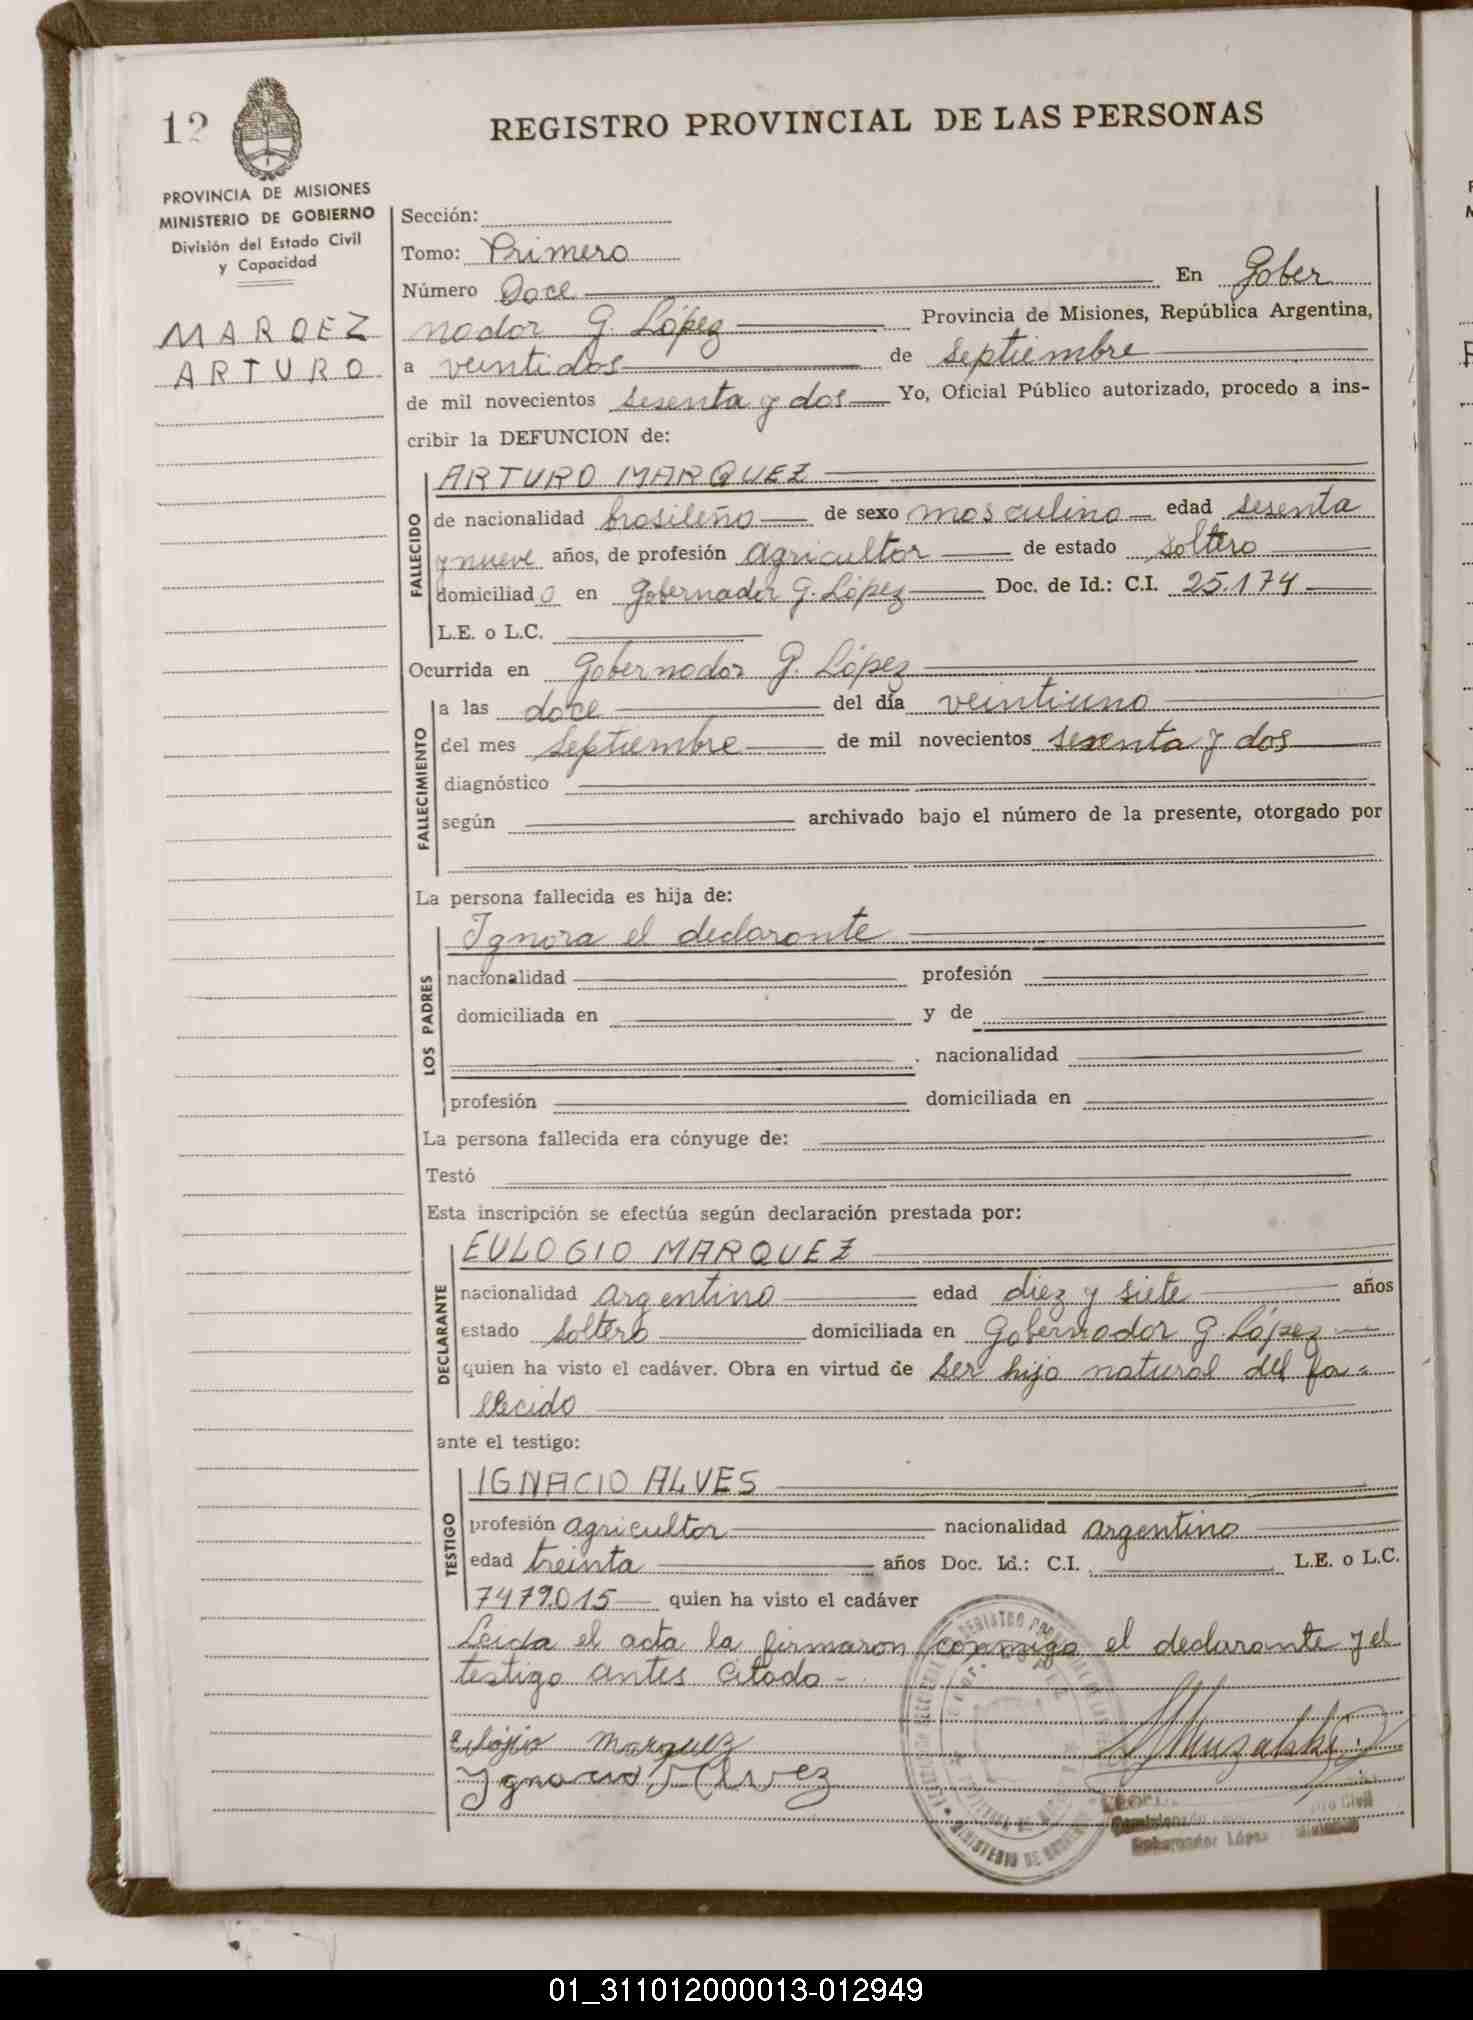 12
REGISTRO PROVINCIAL DE LAS PERSONAS
PROVINCIA DE MISIONES
MINISTERIO DE GOBIERNO
División del Estado Civil
y Capacidad
MARQEZ
ARTURO
Sección:
Tomo: Primero
Número Doce En Gober
nador G. López Provincia de Misiones, República Argentina,
a veintidos de septiembre
de mil novecientos sesenta y dos Yo, Oficial Público autorizado, procedo a ins-
cribir la DEFUNCION de:
FALLECIDO
ARTURO MARQUEZ
de nacionalidad brasileño de sexo masculino edad sesenta
y nueve años, de profesión agricultor de estado soltero
domiciliado en Gobernador G. López Doc. de Id.: C.I. 25.174
L.E. o L.C.
Ocurrida en Gobernador G. López
FALLECIMIENTO
a las doce del día veintiuno
del mes septiembre de mil novecientos sesenta y dos
diagnóstico
según archivado bajo el número de la presente, otorgado por
La persona fallecida es hija de:
LOS PADRES
Ignora el declarante
nacionalidad profesión
domiciliada en y de
. nacionalidad
profesión domiciliada en
La persona fallecida era cónyuge de:
Testó
Esta inscripción se efectúa según declaración prestada por:
DECLARANTE
EULOGIO MARQUEZ
nacionalidad argentino edad diez y siete años
estado soltero domiciliada en Gobernador G. López
quien ha visto el cadáver. Obra en virtud de ser hijo natural del fa=
llecido
ante el testigo:
TESTIGO
IGNACIO ALVES
profesión agricultor nacionalidad argentino
edad treinta años Doc. Id.: C.I. L.E. o L.C.
7479.015 quien ha visto el cadáver
Leida el acta la firmaron conmigo el declarante y el
testigo antes citado -
Elojio Marquez
Ygnacio Alvez
Gobernador López
01_311012000013-012949